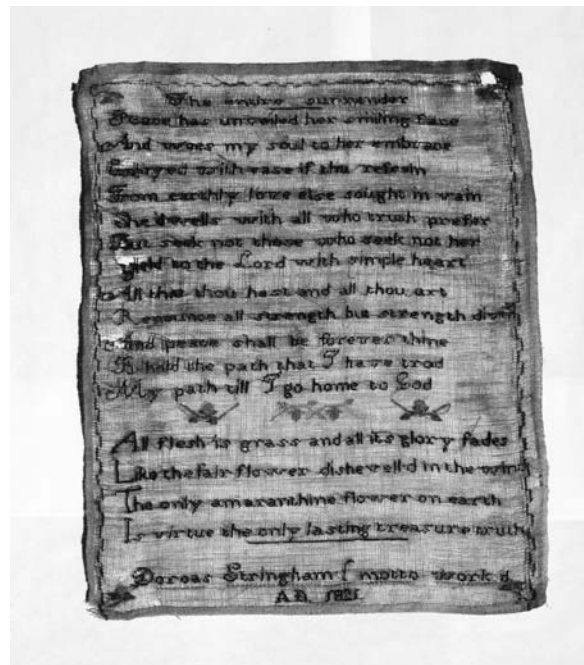 The entire surrender
Peace has unveiled her smiling face
And woes my soul to her embrace
Enioyed with ease if thu refrain
From earthly love else sought in vain
She dwells with all who truth prefer
But seek not those who seek not her
Yield to the Lord with simple heart
All that thou hast and all thou art
Renounce all strength but strength divin
And peace shall be forever thine
Behold the path that I have trod
My path till I go home to God
All flesh is grass and all its glory fades
Like the fair flower dishevell'd in the wind
The only amaranthine flower on earth
Is virtue the only lasting treasure truth
Dorcas Stringham motto work d
A D 1821